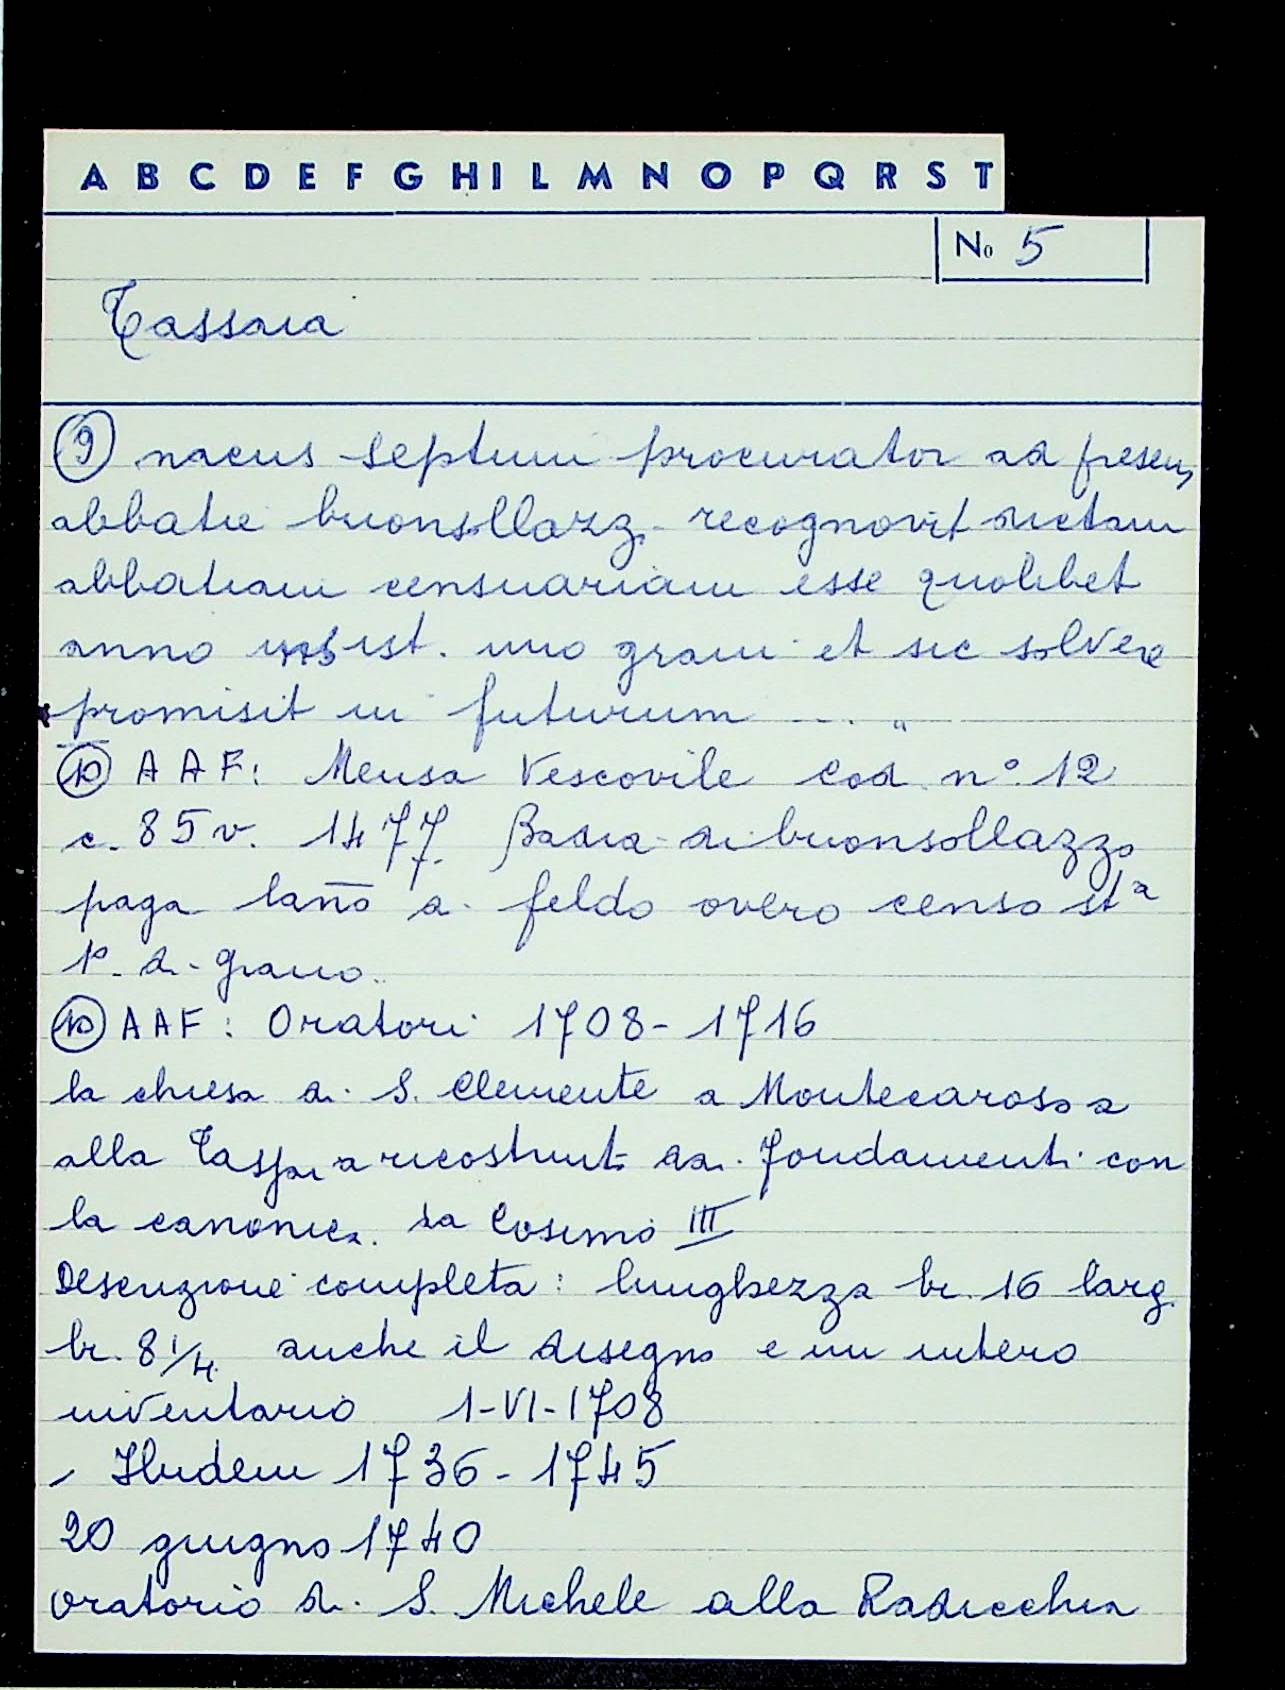 A B C D E F G H I L M N O P Q R S T
No 5
Tassaia
⑨ macus Septimi procurator ad presens
abbatie buonsollazz. recognovit dictam
abbatiam censuariam esse quolibet
anno ist. uno grani et sic solvere
promisit in futurum ... "
⑩ A A F: Mensa Vescovile Cod. n° 12
c. 85 v. 1477 Badia di buonsollazzo
paga lanno a feldo overo censo stª
1º di grano.
⑩ A A F: Oratori 1708-1716
la chiesa di S. Clemente a Montecarosso a
alla Tassaia ricostruit dai fondamenti con
la canonica. da Cosimo III
Descrizione completa: lunghezza br. 16 larg.
br. 8 1/4. anche il disegno e un intero
inventario 1-VI-1708
, Ibidem 1736-1745
20 giugno 1740
oratorio di S. Michele alla Radicchia